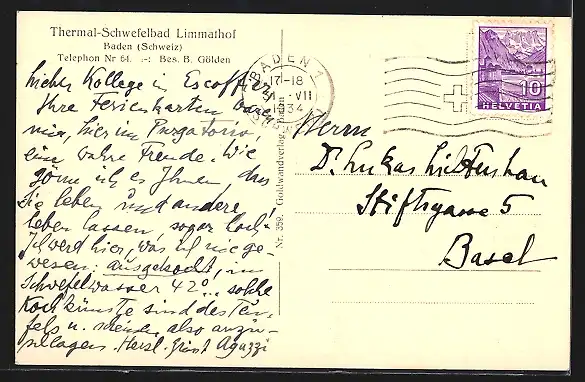 Thermal-Schwefelbad Limmathof
Baden (Schweiz)
Telephon Nr 64. -:- Bes. B. Gölden
Lieber Kollege in Escoffier,
Ihre Ferienkarten waren
mir, hier im Purgatorio,
eine wahre Freude. Wie
gönne ich es Ihnen, dass
Sie leben und andere
leben lassen, sogar hoch!
Ich werd hier, was ich nie ge-
wesen: ausgekocht, im
Schwefelwasser 42°... solche
Kochkünste sind des Teu-
fels u. meiden, also anzu-
Herzl. Grüsst Aguzzi
Nr. 359. Goldwandverlag, Baden
BADEN 1
17-18
VII
1934
HELVETIA
10
Herrn
Dr. Lukas Lichtenhan
Stiftsgasse 5
Basel